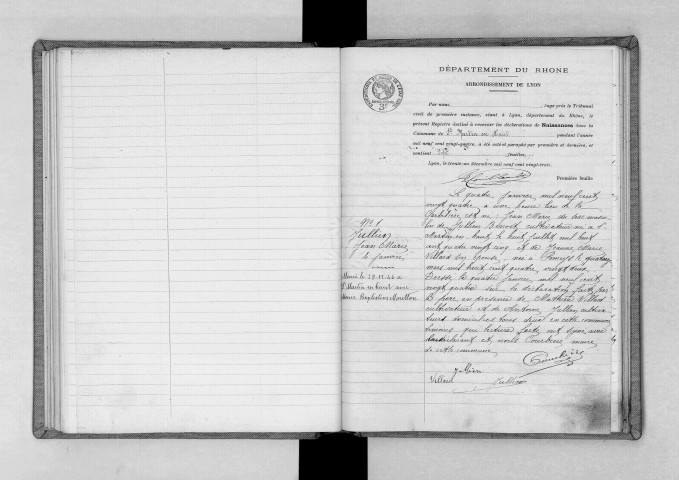 DÉPARTEMENT DU RHONE
ARRONDISSEMENT DE LYON
Par nous, Juge près le Tribunal
civil de première instance, séant à Lyon, département du Rhône, le
présent Registre destiné à recevoir les déclarations de Naissances dans la
Commune de St Martin en Haut pendant l'année
mil neuf cent vingt-quatre, a été coté et paraphé par première et dernière, et
contient feuilles.
Lyon, le trente-un décembre mil neuf cent vingt-trois.
Première feuille
No 1
Jullien
Jean Marie
4 janvier
Marié le 29.11.44 à
St Martin en haut avec
Marie Baptistine
Le quatre janvier mil neuf cent
vingt quatre à une heure lieu de la
est né : Jean Marie du sexe mascu
lin de Jullien Benoit, cultivateur né à St
Martin en haut le huit juillet mil huit
cent quatre vingt cinq et de Jeanne Marie
Villard son épouse, née à Pomeys le quatorze
mars mil huit cent quatre vingt douze
Dressé le quatre janvier mil neuf cent
vingt quatre sur la déclaration faite par
le père en présence de Mathieu Villard
cultivateur et de Antoine Jullien cultiva
teurs domiciliés tous deux en cette commune
témoins qui lecture faite ont signé avec
le déclarant et nous maire
de cette commune
Jullien
Villard Jullien